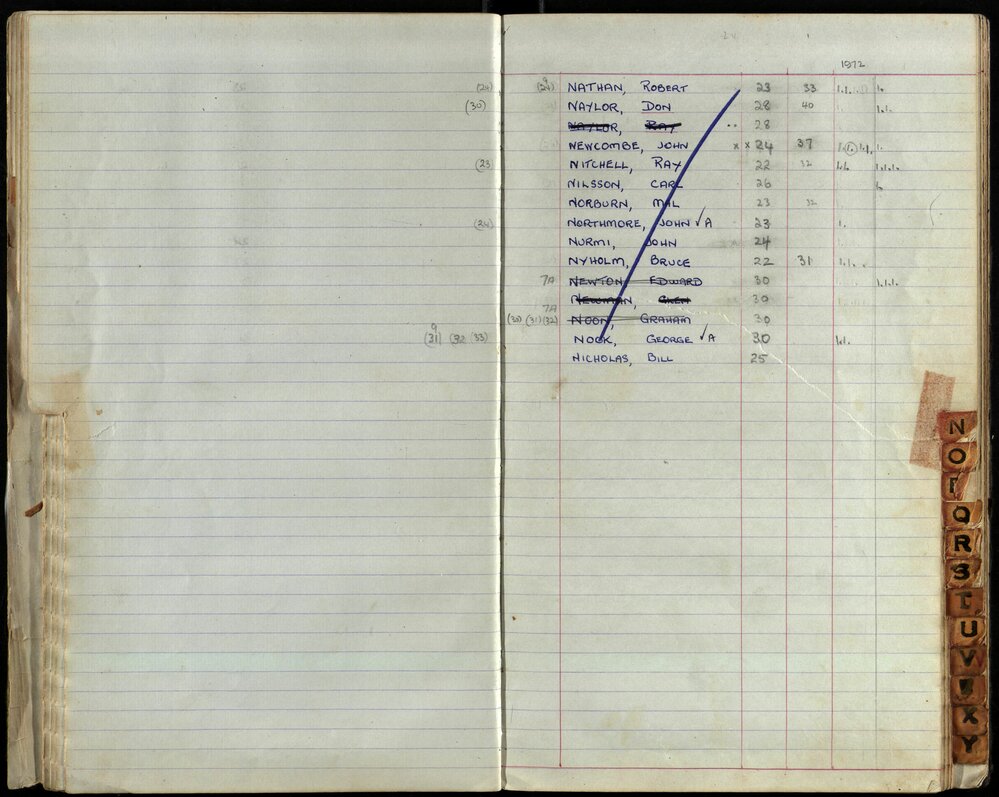 1972
(24) (24) 9 NATHAN, ROBERT 23 33
(30) NAYLOR, DON 28 40
NAYLOR, RAY 28
NEWCOMBE, JOHN x x 24 37
(23) NITCHELL, RAY 22 32
NILSSON, CARL 26
NORBURN, MAL 23 32
(24) NORTHMORE, JOHN ✓A 23
NURMI, JOHN 24
NYHOLM, BRUCE 22 31
7A NEWTON EDWARD 30
NEWMAN, 30
7A
(30) (31) (32) NOON, GRAHAM 30
9
(31) (32 (33) NOCK, GEORGE ✓A 30
NICHOLAS, BILL 25
N
O
P
Q
R
S
T
U
V
X
Y